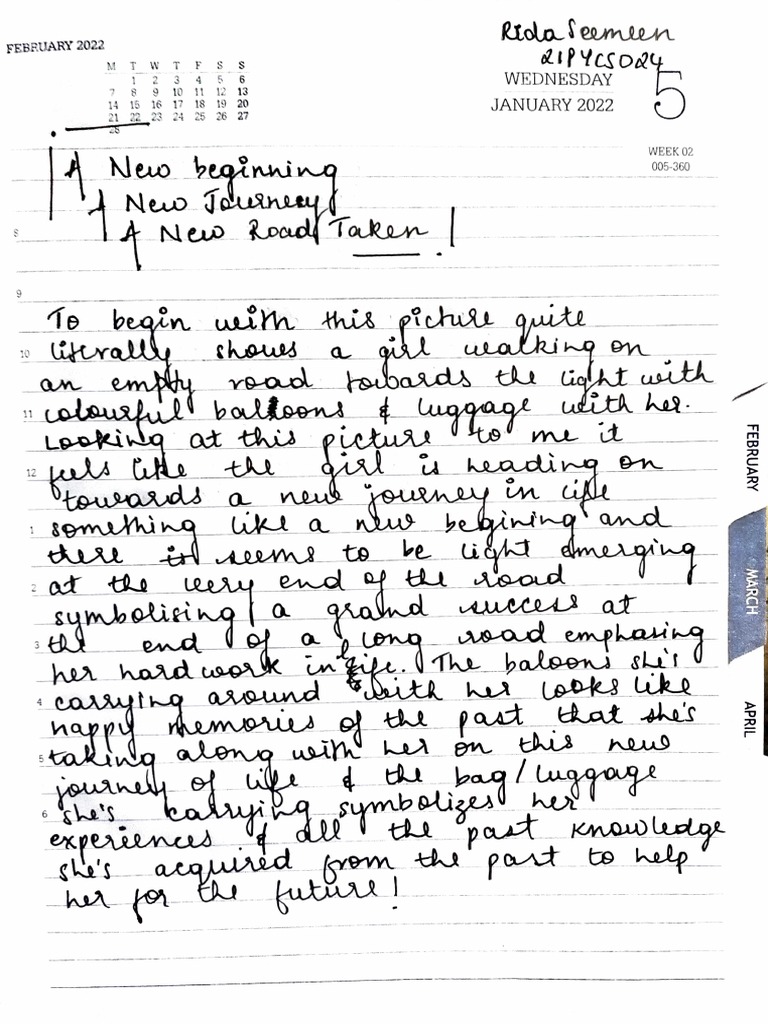 Rida Seemeen
21PYCS024
FEBRUARY 2022
M T W T F S S
1 2 3 4 5 6
7 8 9 10 11 12 13
14 15 16 17 18 19 20
21 22 23 24 25 26 27
28
WEDNESDAY
JANUARY 2022
5
WEEK 02
005-360
A New beginning
A New Journey
A New Road Taken !
8
9
To begin with this picture quite
10 literally shows a girl walking on
an empty road towards the light with
11 colourful balloons & luggage with her.
Looking at this picture to me it
12 feels like the girl is heading on
towards a new journey in life
1 something like a new begining and
there is seems to be light emerging
2 at the very end of the road
symbolising a grand success at
3 the end of a long road emphasing
her hardwork in life. The baloons she's
4 carrying around with her looks like
happy memories of the past that she's
5 taking along with her on this new
journey of life & the bag/luggage
6 she's carrying symbolizes her
experiences & all the past knowledge
she's acquired from the past to help
her for the future!
FEBRUARY
MARCH
APRIL